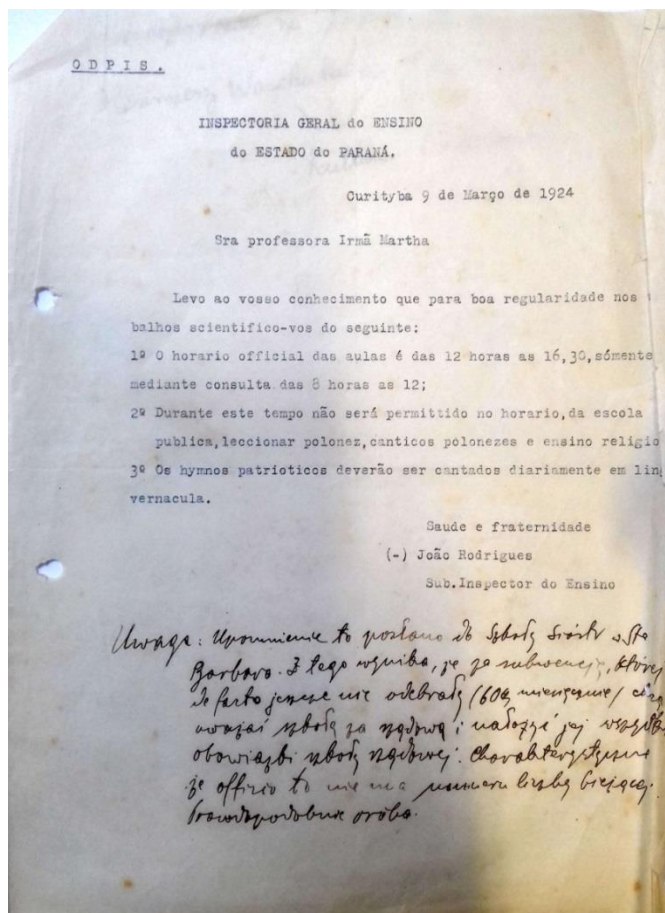 ODPIS.
INSPECTORIA GERAL do ENSINO
do ESTADO do PARANÁ.
Curityba 9 de Março de 1924
Sra professora Irmã Martha
Levo ao vosso conhecimento que para boa regularidade nos
balhos scientifico-vos do seguinte:
1º O horario official das aulas é das 12 horas as 16,30,sómente
mediante consulta das 8 horas as 12;
2º Durante este tempo não será permittido no horario,da escola
publica,leccionar polonez,canticos polonezes e ensino religio
3º Os hymnos patrioticos deverão ser cantados diariamente em lin
vernacula.
Saude e fraternidade
(-) João Rodrigues
Sub.Inspector do Ensino
Uwaga: Upomnienie to posłano do Szkoły Sióstr w Sta
Barbara. Z tego wynika, że za subwencję, której
de facto jeszcze nie odebrały (60$ miesięcznie) chcą
uważać szkołę za rządową i nałożyć jej wszystkie
obowiązki szkoły rządowej. Charakterystyczne
że officio to nie ma numeru liczby bieżącej.
Prawdopodobnie próba.